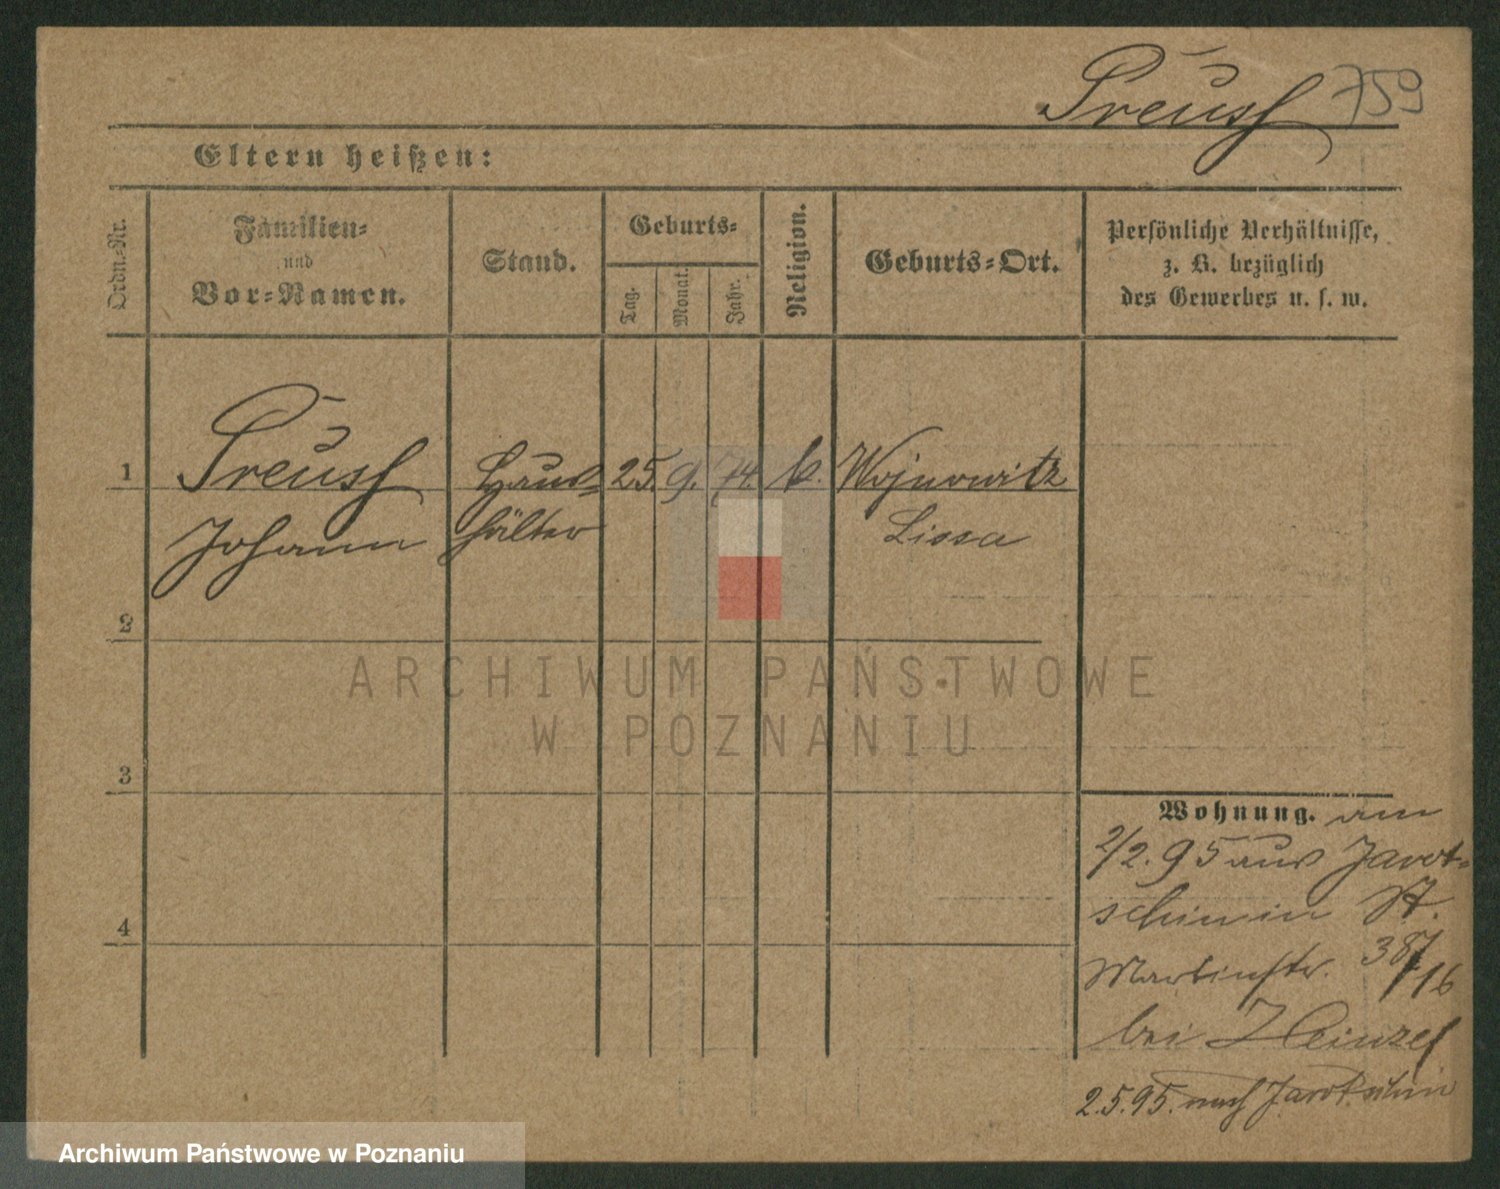 Preuss 759
Eltern heißen:
Ordn.-Nr.
Familien-
und
Vor-Namen.
Stand.
Geburts-
Tag.
Monat.
Jahr.
Religion.
Geburts-Ort.
Persönliche Verhältnisse,
z. B. bezüglich
des Gewerbes u. s. w.
1
Preuss
Johann
Haus-
hälter
25. 9. 74. k.
Wojnowitz
Lissa
2
3
4
Wohnung. am
2/2. 95 aus Jarot-
schin in St.
Martinstr. 387/16
bei Heinzel
2.5.95. nach Jarotschin
ARCHIWUM PAŃSTWOWE
W POZNANIU
Archiwum Państwowe w Poznaniu